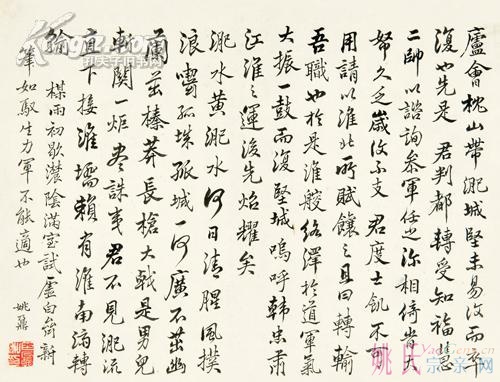 廬會枕山帶淝城堅未易攻而卒
復也先是 君判都轉受知福
二帥以諮詢參軍任之深相倚 大
帑久乏歲收不支 君度士飢不可
用請以淮北所賦饟之且曰轉輸
吾職也於是淮艘絡澤於道軍氣
大振一鼓而復堅城嗚呼韓忠肅
江淮之運後先炤耀矣
淝水黃淝水何日清腥風撲
浪嚙孤 孤城一何廣不茁幽
蘭茁榛莽長槍大戟是男兒
斬關一炬盡誅夷 君不見淝流
直下接淮壖賴有淮南 轉
輸
楳雨初歇濃陰滿室試虛白齋新
筆如馭生力軍不能適也 姚鼐
姚氏宗亲网